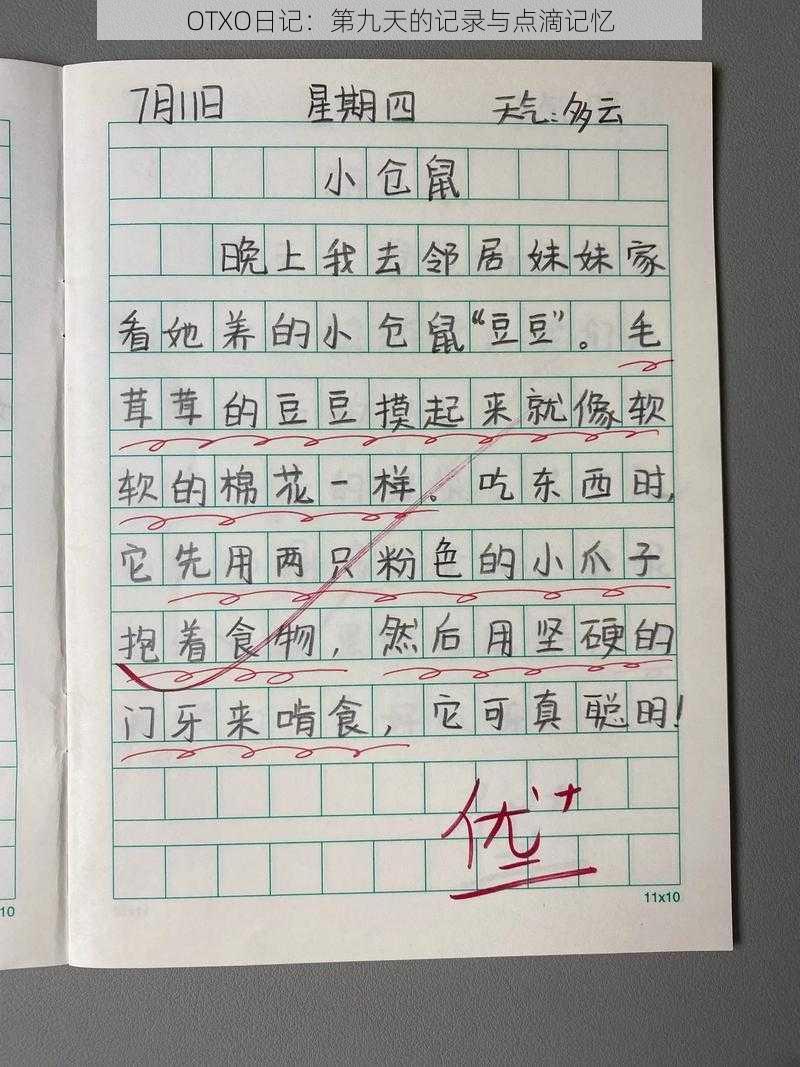 OTXO日记：第九天的记录与点滴记忆
7月11日 星期四 天气：多云
小仓鼠
晚上我去邻居妹妹家
看她养的小仓鼠“豆豆”。毛
茸茸的豆豆摸起来就像软
软的棉花一样。吃东西时，
它先用两只粉色的小爪子
抱着食物，然后用坚硬的
门牙来啃食，它可真聪明！
优+
11x10
10